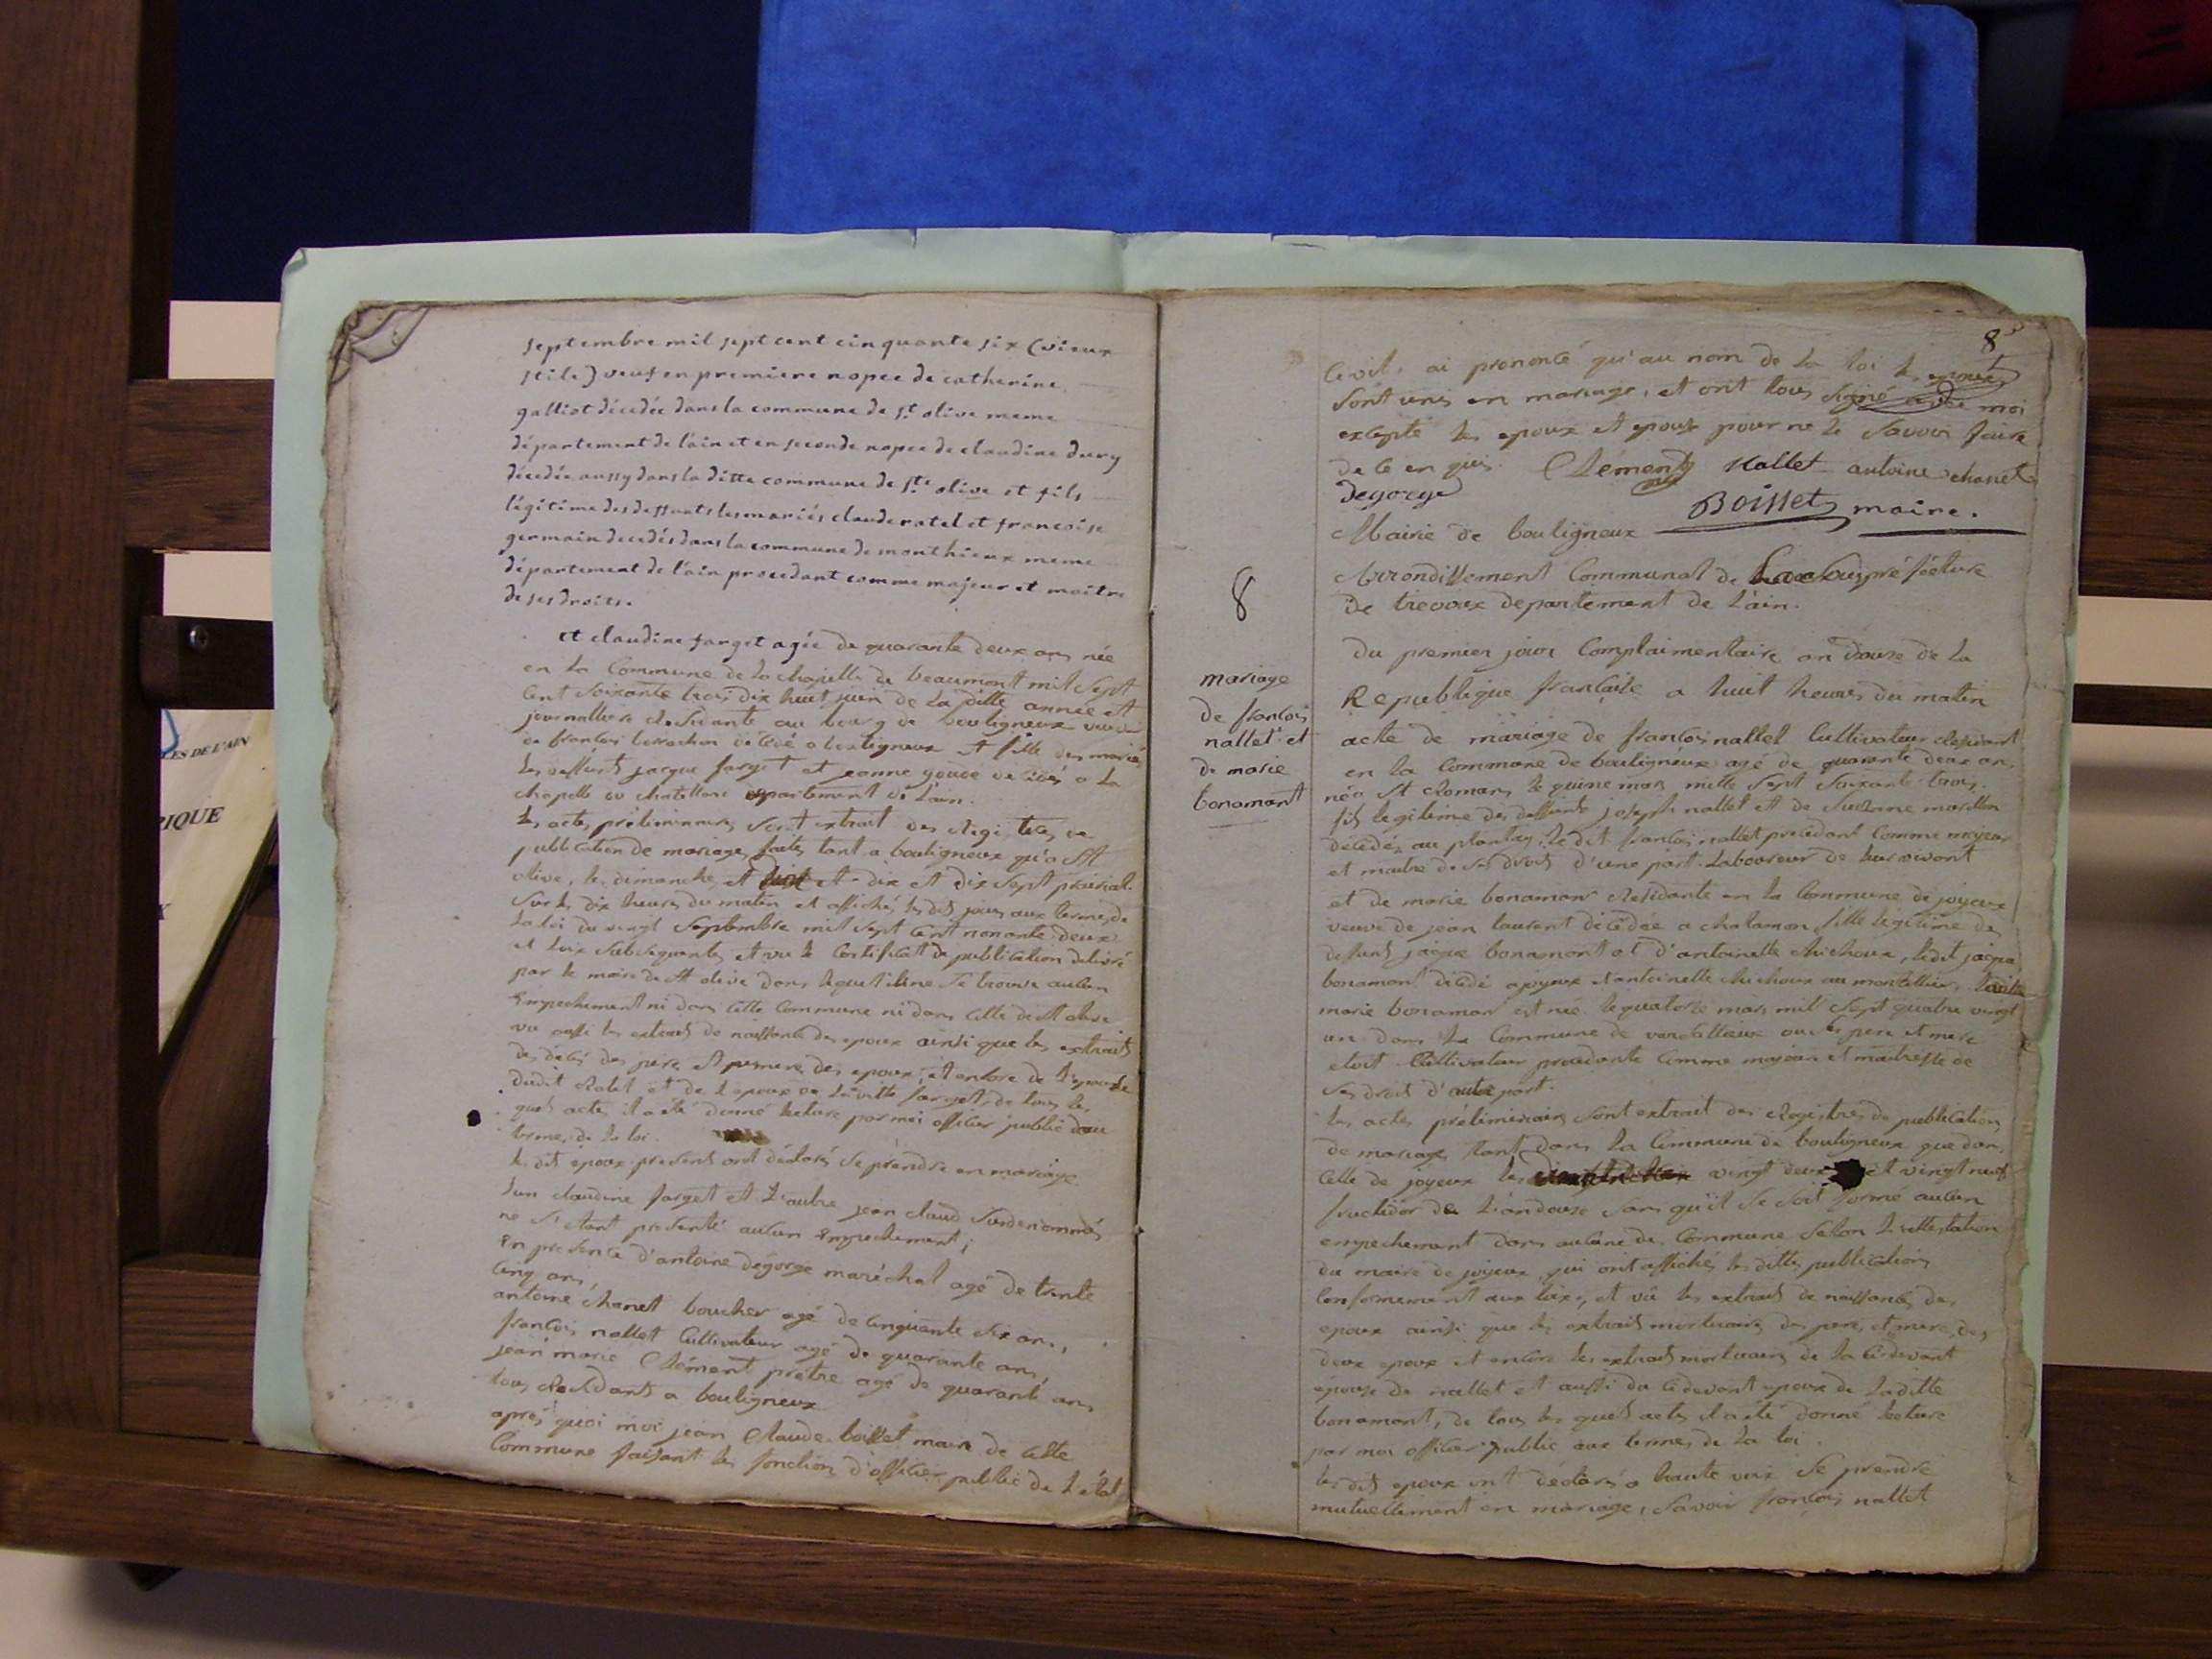 septembre mil sept cent cinquante six (vieux
stile) veuf en premiere nopce de catherine
galliot décedée dans la commune de st olive meme
département de l'ain et en seconde nopce de claudine dury
décedée aussy dans la ditte commune de ste olive et fils
légitime des deffunts les mariés claude ratel et francoise
germain decedés dans la commune de monthieux meme
département de l'ain procedant comme majeur et maitre
de ses droits.
et claudine farget agée de quarante deux ans née
en la Commune de la chapelle de beaumont mil sept
Cent soixante trois dix huit juin de la ditte année et
journalliere Residante au bourg de bouligneux veuve
de francois décédé a bouligneux et fille des mariés
les deffunts jacque farget et jeanne goude décédés a la
chapelle du chatellard departement de L'ain.
les actes préliminaires sont extrait des Registres de
publication de mariage faites tant a bouligneux qu'a St
olive, les dimanche et dix et dix sept prairial
sur les dix heures du matin et affichés les dits jours aux termes de
la loi du vingt Septembre mil sept Cent nonante deux
et loix Subsequentes et vu le Certificat de publication delivré
par le maire de St olive dans lequel il ne se trouve aucun
Empechement ni dans cette Commune ni dans Celle de St olive
vu aussi les extraits de naissance des epoux ainsi que les extraits
de décés des pere et mere des epoux, et encore de l'epouse
dudit Ratel et de l'epoux de la ditte farget, de tous les
quels actes il a été donné lecture par moi officier public aux
termes de la loi.
les dits époux presents ont déclarés se prendre en mariage
l'un claudine farget et L'autre jean claud Surdenommés
ne s'etant presenté aucun Empechement;
En presence d'antoine dégorge maréchal agé de trente
Cinq ans,
antoine chanet boucher agé de Cinquante six ans,
francois nallet Cultivateur agé de quarante ans,
jean marie Clément prétre agé de quarante ans
tous Residants a bouligneux
aprés quoi moi jean Claude boisset maire de cette
Commune faisant les fonctions d'officier public de L'état
8
Civil, ai prononcé qu'au nom de la loi les epoux
Sont unis en mariage, et ont tous signé avec moi
excepté les epoux et epouse pour ne le Savoir faire
de ce en quis. Clément Nallet antoine chanet
degorge
Boisset maire.
Mairie de bouligneux
Arrondissement Communal de La Souspréfécture
de trevoux departement de L'ain.
8
mariage
de francois
nallet et
de marie
bonamant
Du premier jour Complaimentaire an douze de la
Republique francaise a huit heures du matin
acte de mariage de francois nallet Cultivateur Residant
en la Commune de bouligneux agé de quarante deux ans,
né a St Romans le quinze mars mille sept soixante trois,
fils legitime des deffunts joseph nallet et de Suzanne
décédés au plantay, ledit francois nallet procedant Comme majeur
et maitre de ses droits d'une part. Laboureur de leur vivant
et de marie bonamant Residante en la Commune de joyeux
veuve de jean laurent décédée a chalamon, fille legitime des
deffunts jacque bonamont et d'antoinette Michoux, ledit jacque
bonamont décédé a joyeux et antoinette Michoux au montellier, ladite
marie bonamant est née le quatorze mars mil sept quatre vingt
un dans la Commune de versailleux ou ses pere et mere
etoit Cultivateur procedante Comme majeure et maitresse de
Ses droits d'autre part.
les actes préliminaires sont extrait des Registres de publication
de mariage tant dans la Commune de bouligneux que dans
Celle de joyeux les vingt deux et vingt neuf
fructidor de L'an douze Sans qu'il Se Soit formé aucun
empechement dans aucune des Commune Selon L'attestation
du maire de joyeux, qui ont affichés les dittes publications
Conformement aux loix, et vû les extraits de naissances des
epoux ainsi que les extraits mortuaires des pere et mere des
deux epoux et encore les extraits mortuaires de la Cidevant
épouse de nallet et aussi du Cidevant epoux de Laditte
bonamont, de tous les quels actes il a été donné lecture
par moi officier public aux termes de la loi.
les dits epoux ont déclarés a haute voix Se prendre
mutuellement en mariage, Savoir francois nallet
LES DE L'AIN
RIQUE